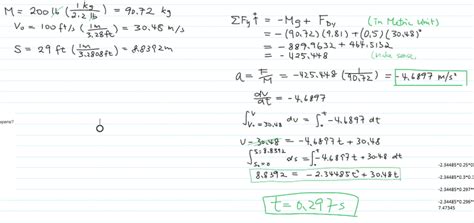 M = 200 lb (1 kg / 2.2 lb) = 90.72 kg
V₀ = 100 ft/s (1m / 3.28ft) = 30.48 m/s
S = 29 ft (1m / 3.2808ft) = 8.8392 m
ΣFy ↑ = -Mg + FDy (in Metric Units)
= -(90.72)(9.81) + (0.5)(30.48)²
= -889.9632 + 464.5152
= -425.448
a = F/M = -425.448 (1/90.72) = -4.6897 m/s²
dv/dt = -4.6897
∫ᵛ V₀=30.48 dv = ∫₀ᵗ -4.6897 dt
V - 30.48 = -4.6897t + 30.48
∫ S=8.8392 S₀=0 ds = ∫₀ᵗ -4.6897t + 30.48 dt
8.8392 = -2.34485t² + 30.48t
t = 0.297 s
-2.34485*0.25^
-2.34485*0.3^
-2.34485*0.297^
-2.34485*0.296^
7.47345